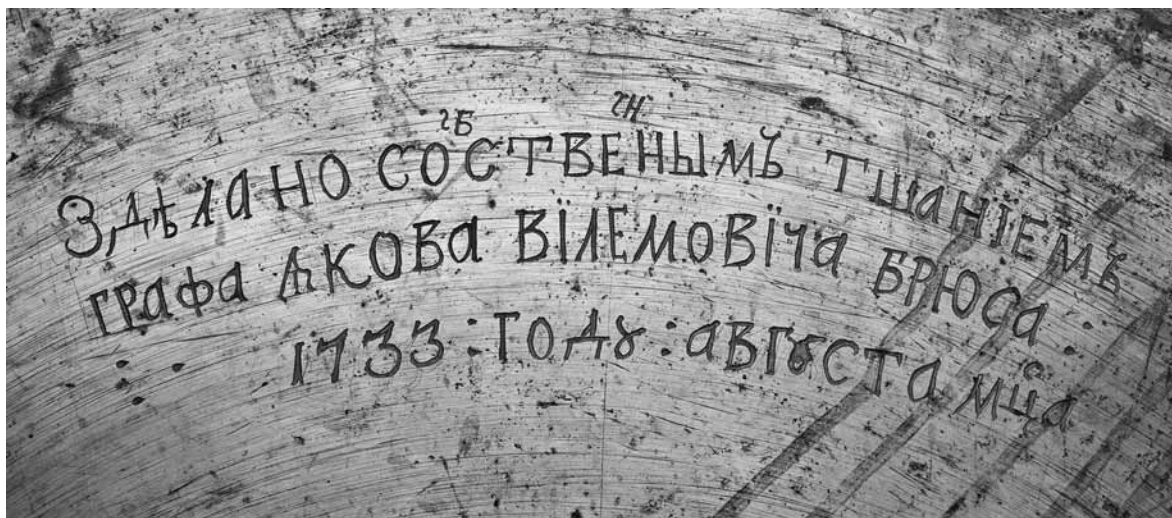 ЗДѢЛАНО СОбСТВЕнНЫМЪ ТЩАНЇЕМЪ
ГРАФА ѦКОВА ВЇЛЕМОВЇЧА БРЮСА
1733 : ГОДꙋ : АВГꙋСТА МЦⷭА